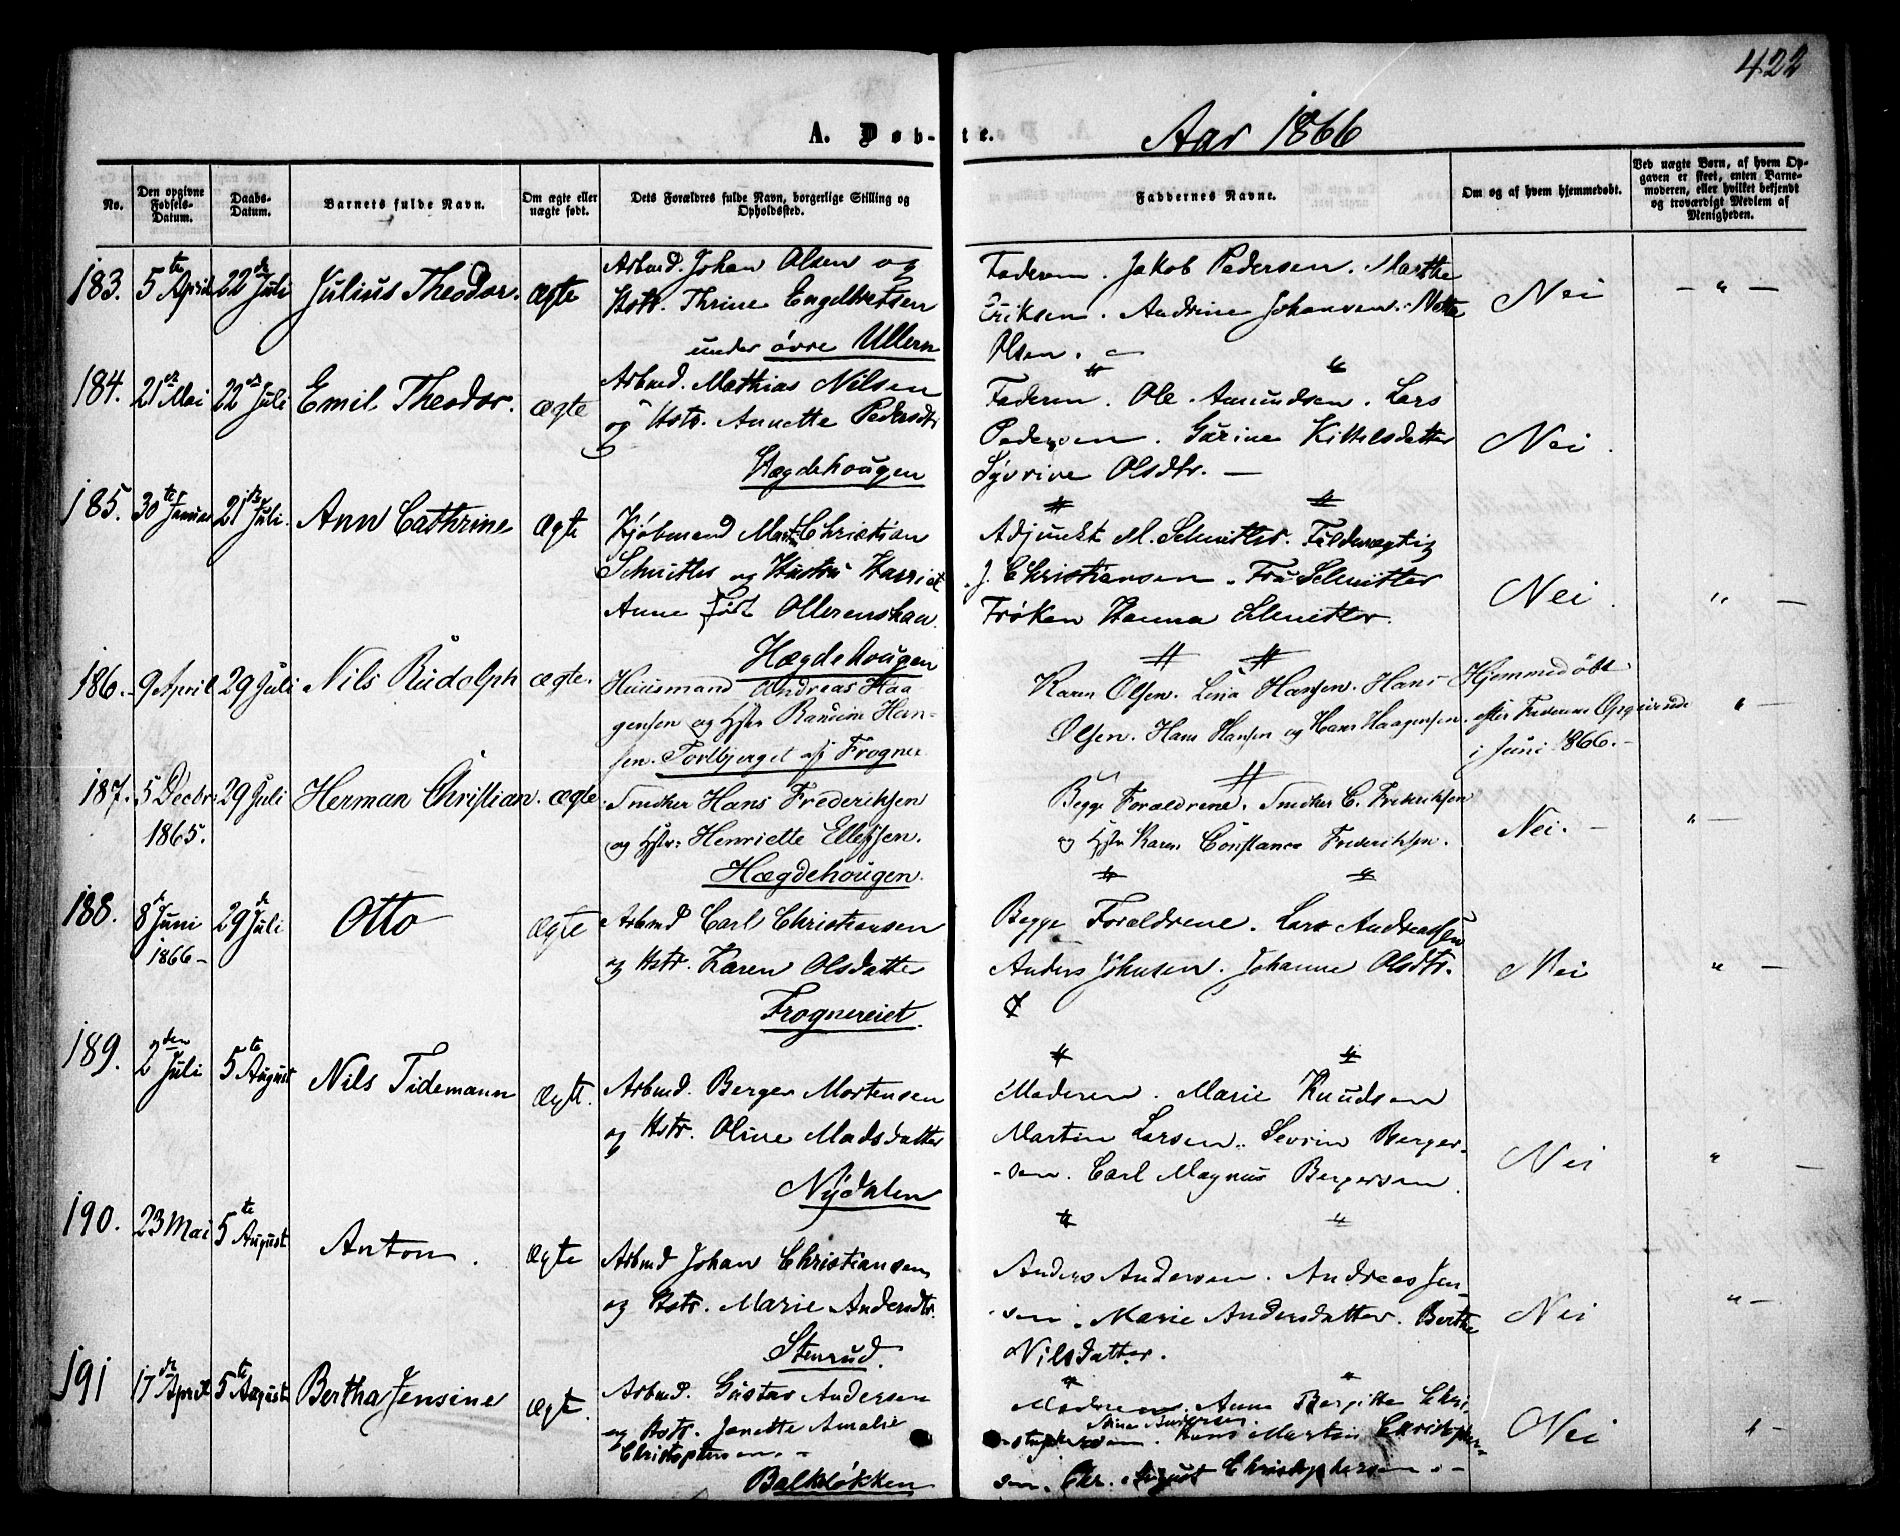 422
A. Døb-te. Aar 1866
No.
Den opgivne Fødsels-Datum.
Daabs-Datum.
Barnets fulde Navn.
Om ægte eller uægte født.
Dets Forældres fulde Navn, borgerlige Stilling og Opholdssted.
Faddernes Navne.
Om og af hvem hjemmedøbt.
Ved uægte Børn, af hvem Opgaven er skeet, enten Barnemoderen, eller hvilket bekjendt og troværdigt Medlem af Menigheden.
183. 5te April 22de Juli Julius Theodor. Ægte
Arbmd. Johan Olsen og
Hstr. Thrine Engelbretsen
under øvre Ullern
Faderen. Jakob Pedersen. Marthe
Eriksen. Andrine Johansen. Nette
Olsen.
Nei — " —
184. 21de Mai 22de Juli Emil Theodor. Ægte
Arbmd. Mathias Nilsen
og Hstr. Annette Pedersdtr
Hægdehougen
Faderen. Ole Amundsen. Lars
Pedersen. Gurine Kittelsdatter
Syvrive Olsdtr. —
Nei.
185. 30te Januar 21de Juli. Ann Cathrine Ægte
Kjøbmand Mart. Christian
Schnitler og Hustru Harriet
Anne født Ollerenshaw.
Hægdehougen
Adjunkt M. Schnitler. Fuldmægtig
J. Christiansen. Fru Schnitler
Frøken Hanna Schnitler.
Nei. " —
186. 9 April 29 Juli Nils Rudolph ægte.
Huusmand Andreas Haa
gensen og Hstr Randine Han-
sen. Torlbjerget af Frogner
Karen Olsen. Lina Hansen. Hans
Olsen. Hans Hansen og Hans Haagensen.
Hjemmedøbt
efter Faderens Opgivende
i Juni 1866. —
" —
187. 5 Decbr. 1865. 29 Juli Herman Christian. ægte
Smeker Hans Frederiksen
og Hstr: Henriette Ellefsen.
Hægdehougen.
Begge Forældrene. Smeker C. Frederiksen
og Hstr Karen Constance Frederiksen.
Nei. — " —
188. 8de Juni 1866 — 29de Juli Otto Ægte
Arbmd Carl Christiansen
og Hstr. Karen Olsdatter
Frognereiet.
Begge Forældrene. Lars Andreassen
Anders Johnsen. Johanne Olsdtr.
Nei " —
189. 2den Juli 5te August Nils Tidemann Ægt.
Arbmd. Berger Mortensen
og Hstr. Oline Madsdatter
Nydalen
Moderen. Marie Knudsen
Martin Larsen. Sevrin Berger-
-sen. Carl Magnus Bergersen.
Nei " —
190. 23 Mai 5te August Anton. Ægte
Arbmd Johan Christiansen
og Hstr. Marie Andersdtr.
Stenrud.
Anders Andersen. Andreas Jen-
-sen. Marie Andersdatter. Berthe
Nilsdatter.
Nei " —
191 17de April 5te August Bertha Jensine Ægte.
Arbmd. Gustav Andersen
og Hstr. Janette Amalie
Christophersen. —
Balkeløkken
Moderen. Anna Bergitte Chri-
Stina Andersen.
-stophersen. Hans Martin Christopher-
sen. Chr. August Christophersen. —
Nei " —